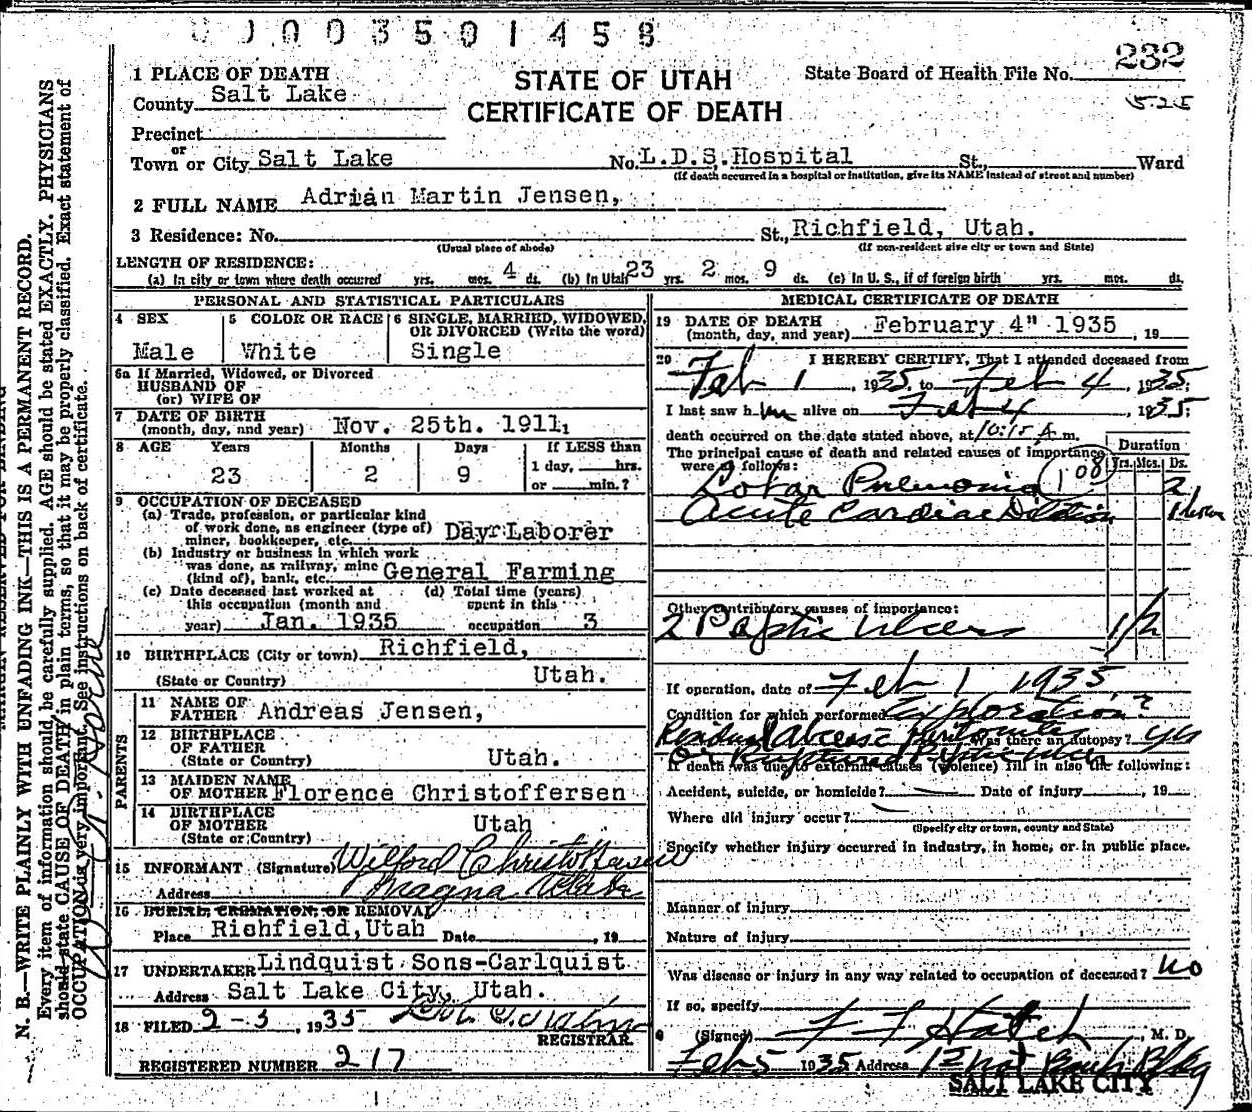 0003501458
232
525
1 PLACE OF DEATH
County Salt Lake
STATE OF UTAH
CERTIFICATE OF DEATH
State Board of Health File No.
Precinct
or
Town or City Salt Lake No. L.D.S. Hospital St., Ward
(If death occurred in a hospital or institution, give its NAME instead of street and number)
2 FULL NAME Adrian Martin Jensen,
3 Residence: No. St., Richfield, Utah.
(Usual place of abode) (If non-resident give city or town and State)
LENGTH OF RESIDENCE:
(a) In city or town where death occurred yrs. mos. 4 ds. (b) In Utah 23 yrs. 2 mos. 9 ds. (c) In U. S., if of foreign birth yrs. mos. ds.
PERSONAL AND STATISTICAL PARTICULARS
4 SEX
Male
5 COLOR OR RACE
White
6 SINGLE, MARRIED, WIDOWED, OR DIVORCED (Write the word)
Single
6a If Married, Widowed, or Divorced
HUSBAND OF
(or) WIFE OF
7 DATE OF BIRTH
(month, day, and year) Nov. 25th. 1911,
8 AGE Years Months Days If LESS than
23 2 9 1 day, hrs.
or min.?
9 OCCUPATION OF DECEASED
(a) Trade, profession, or particular kind
of work done, as engineer (type of)
miner, bookkeeper, etc. Day Laborer
(b) Industry or business in which work
was done, as railway, mine
(kind of), bank, etc. General Farming
(c) Date deceased last worked at (d) Total time (years)
this occupation (month and spent in this
year) Jan. 1935 occupation 3
10 BIRTHPLACE (City or town) Richfield,
(State or Country) Utah.
PARENTS
11 NAME OF
FATHER Andreas Jensen,
12 BIRTHPLACE
OF FATHER
(State or Country) Utah.
13 MAIDEN NAME
OF MOTHER Florence Christoffersen
14 BIRTHPLACE
OF MOTHER
(State or Country) Utah
15 INFORMANT (Signature) Wilford Christoffersen
Address Magna Utah
16 BURIAL, CREMATION, OR REMOVAL
Place Richfield, Utah Date , 19
17 UNDERTAKER Lindquist Sons-Carlquist
Address Salt Lake City, Utah.
18 FILED 2-5, 1935
REGISTRAR
REGISTERED NUMBER 217
MEDICAL CERTIFICATE OF DEATH
19 DATE OF DEATH
(month, day, and year) February 4" 1935, 19
20 I HEREBY CERTIFY, That I attended deceased from
Feb 1, 1935, to Feb 4, 1935;
I last saw him alive on Feb 4, 1935;
death occurred on the date stated above, at 10:15 A m.
The principal cause of death and related causes of importance
were as follows: Duration
Yrs. Mos. Ds.
108
Lobar Pneumonia 2
Acute Cardiac Dilation 1 hour
Other contributory causes of importance:
2 Peptic Ulcers 1/2
If operation, date of Feb 1 1935
Condition for which performed Exploration?
Abcess Peritonitis Was there an autopsy? yes
Or Ruptured Peptic ulcer
If death was due to external causes (violence) fill in also the following:
Accident, suicide, or homicide? Date of injury , 19
Where did injury occur?
(Specify city or town, county and State)
Specify whether injury occurred in industry, in home, or in public place.
Manner of injury
Nature of injury
Was disease or injury in any way related to occupation of deceased? No
If so, specify
(Signed) F F Hatch, M. D.
Feb 5 1935 Address Bldg
SALT LAKE CITY
N. B.—WRITE PLAINLY WITH UNFADING INK—THIS IS A PERMANENT RECORD.
Every item of information should be carefully supplied. AGE should be stated EXACTLY. PHYSICIANS
should state CAUSE OF DEATH in plain terms, so that it may be properly classified. Exact statement of
OCCUPATION is very important. See instructions on back of certificate.